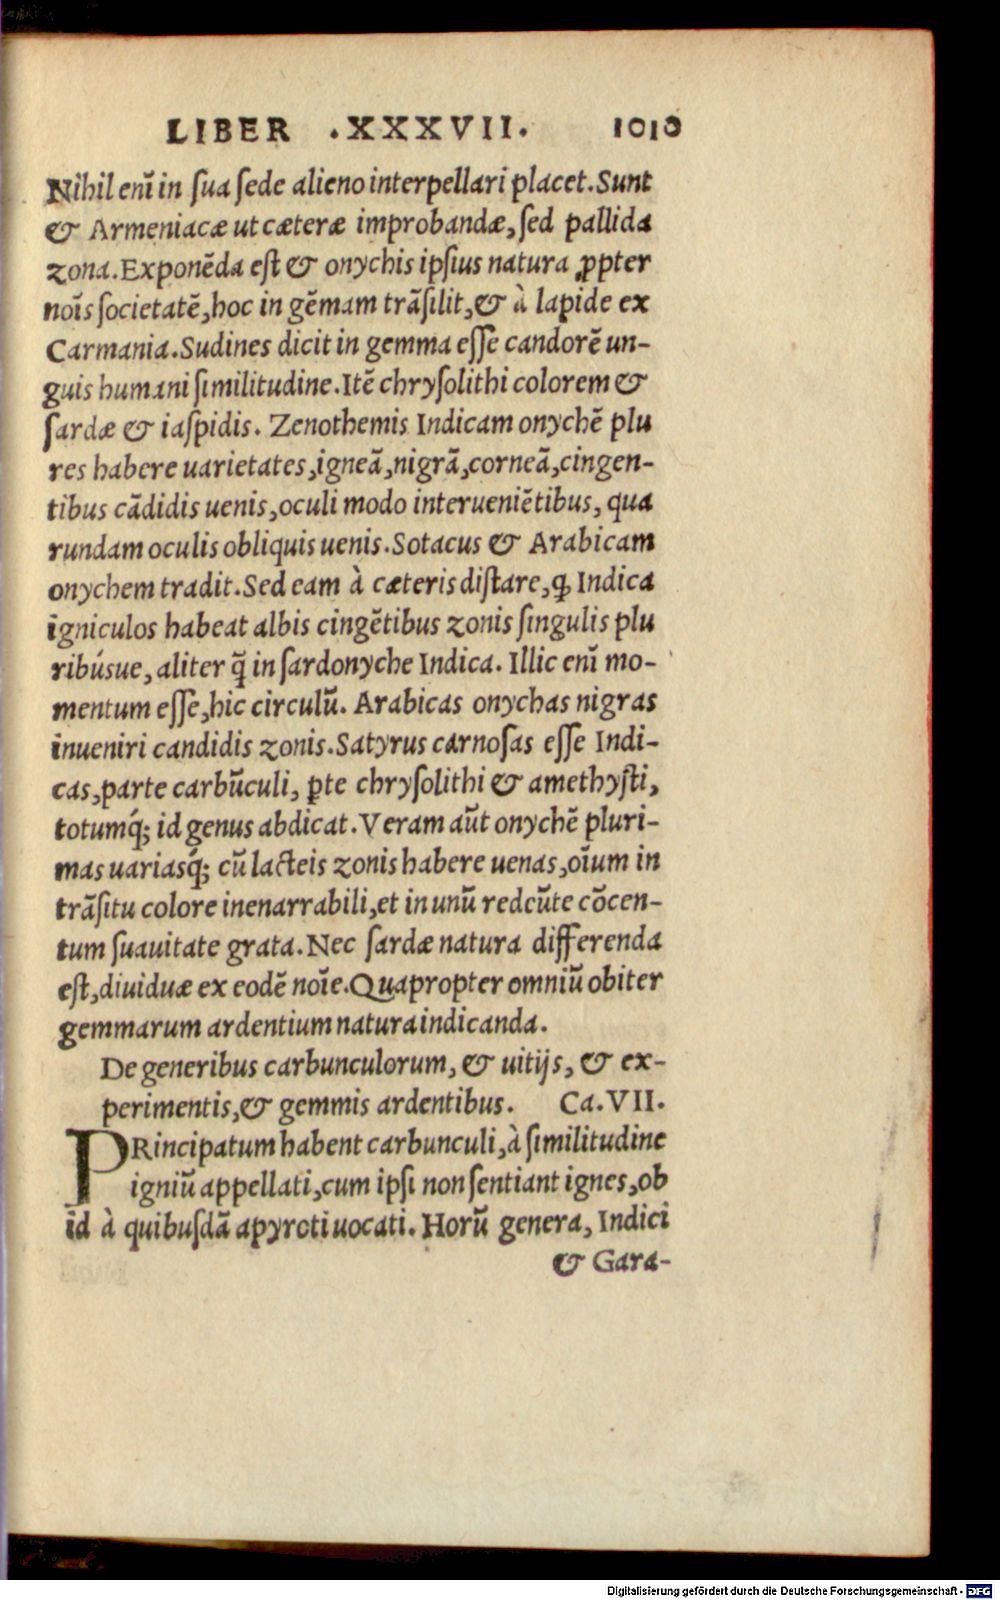 LIBER .XXXVII. 1010
Nihil enī in ſua ſede alieno interpellari placet. Sunt
& Armeniacæ ut cæteræ improbandæ, ſed pallida
zona. Exponēda eſt & onychis ipſius natura ꝓpter
noīs ſocietatē, hoc in gēmam trāſilit, & à lapide ex
Carmania. Sudines dicit in gemma eſſe candorē un-
guis humani ſimilitudine. Itē chryſolithi colorem &
ſardæ & iaſpidis. Zenothemis Indicam onychē plu
res habere uarietates, igneā, nigrā, corneā, cingen-
tibus cādidis uenis, oculi modo interueniētibus, qua
rundam oculis obliquis uenis. Sotacus & Arabicam
onychem tradit. Sed eam à cæteris diſtare, ꝙ Indica
igniculos habeat albis cingētibus zonis ſingulis plu
ribúsue, aliter q̃ in ſardonyche Indica. Illic enī mo-
mentum eſſe, hic circulū. Arabicas onychas nigras
inueniri candidis zonis. Satyrus carnoſas eſſe Indi-
cas, parte carbūculi, ꝑte chryſolithi & amethyſti,
totumq́; id genus abdicat. Veram aūt onychē pluri-
mas uariasq́; cū lacteis zonis habere uenas, oīum in
trāſitu colore inenarrabili, et in unū redeūte cōcen-
tum ſuauitate grata. Nec ſardæ natura differenda
eſt, diuiduæ ex eodē noīe. Quapropter omniū obiter
gemmarum ardentium natura indicanda.
De generibus carbunculorum, & uitijs, & ex-
perimentis, & gemmis ardentibus. Ca. VII.
PRincipatum habent carbunculi, à ſimilitudine
igniū appellati, cum ipſi non ſentiant ignes, ob
id à quibuſdā apyroti uocati. Horū genera, Indici
& Gara-
Digitalisierung gefördert durch die Deutsche Forschungsgemeinschaft - DFG